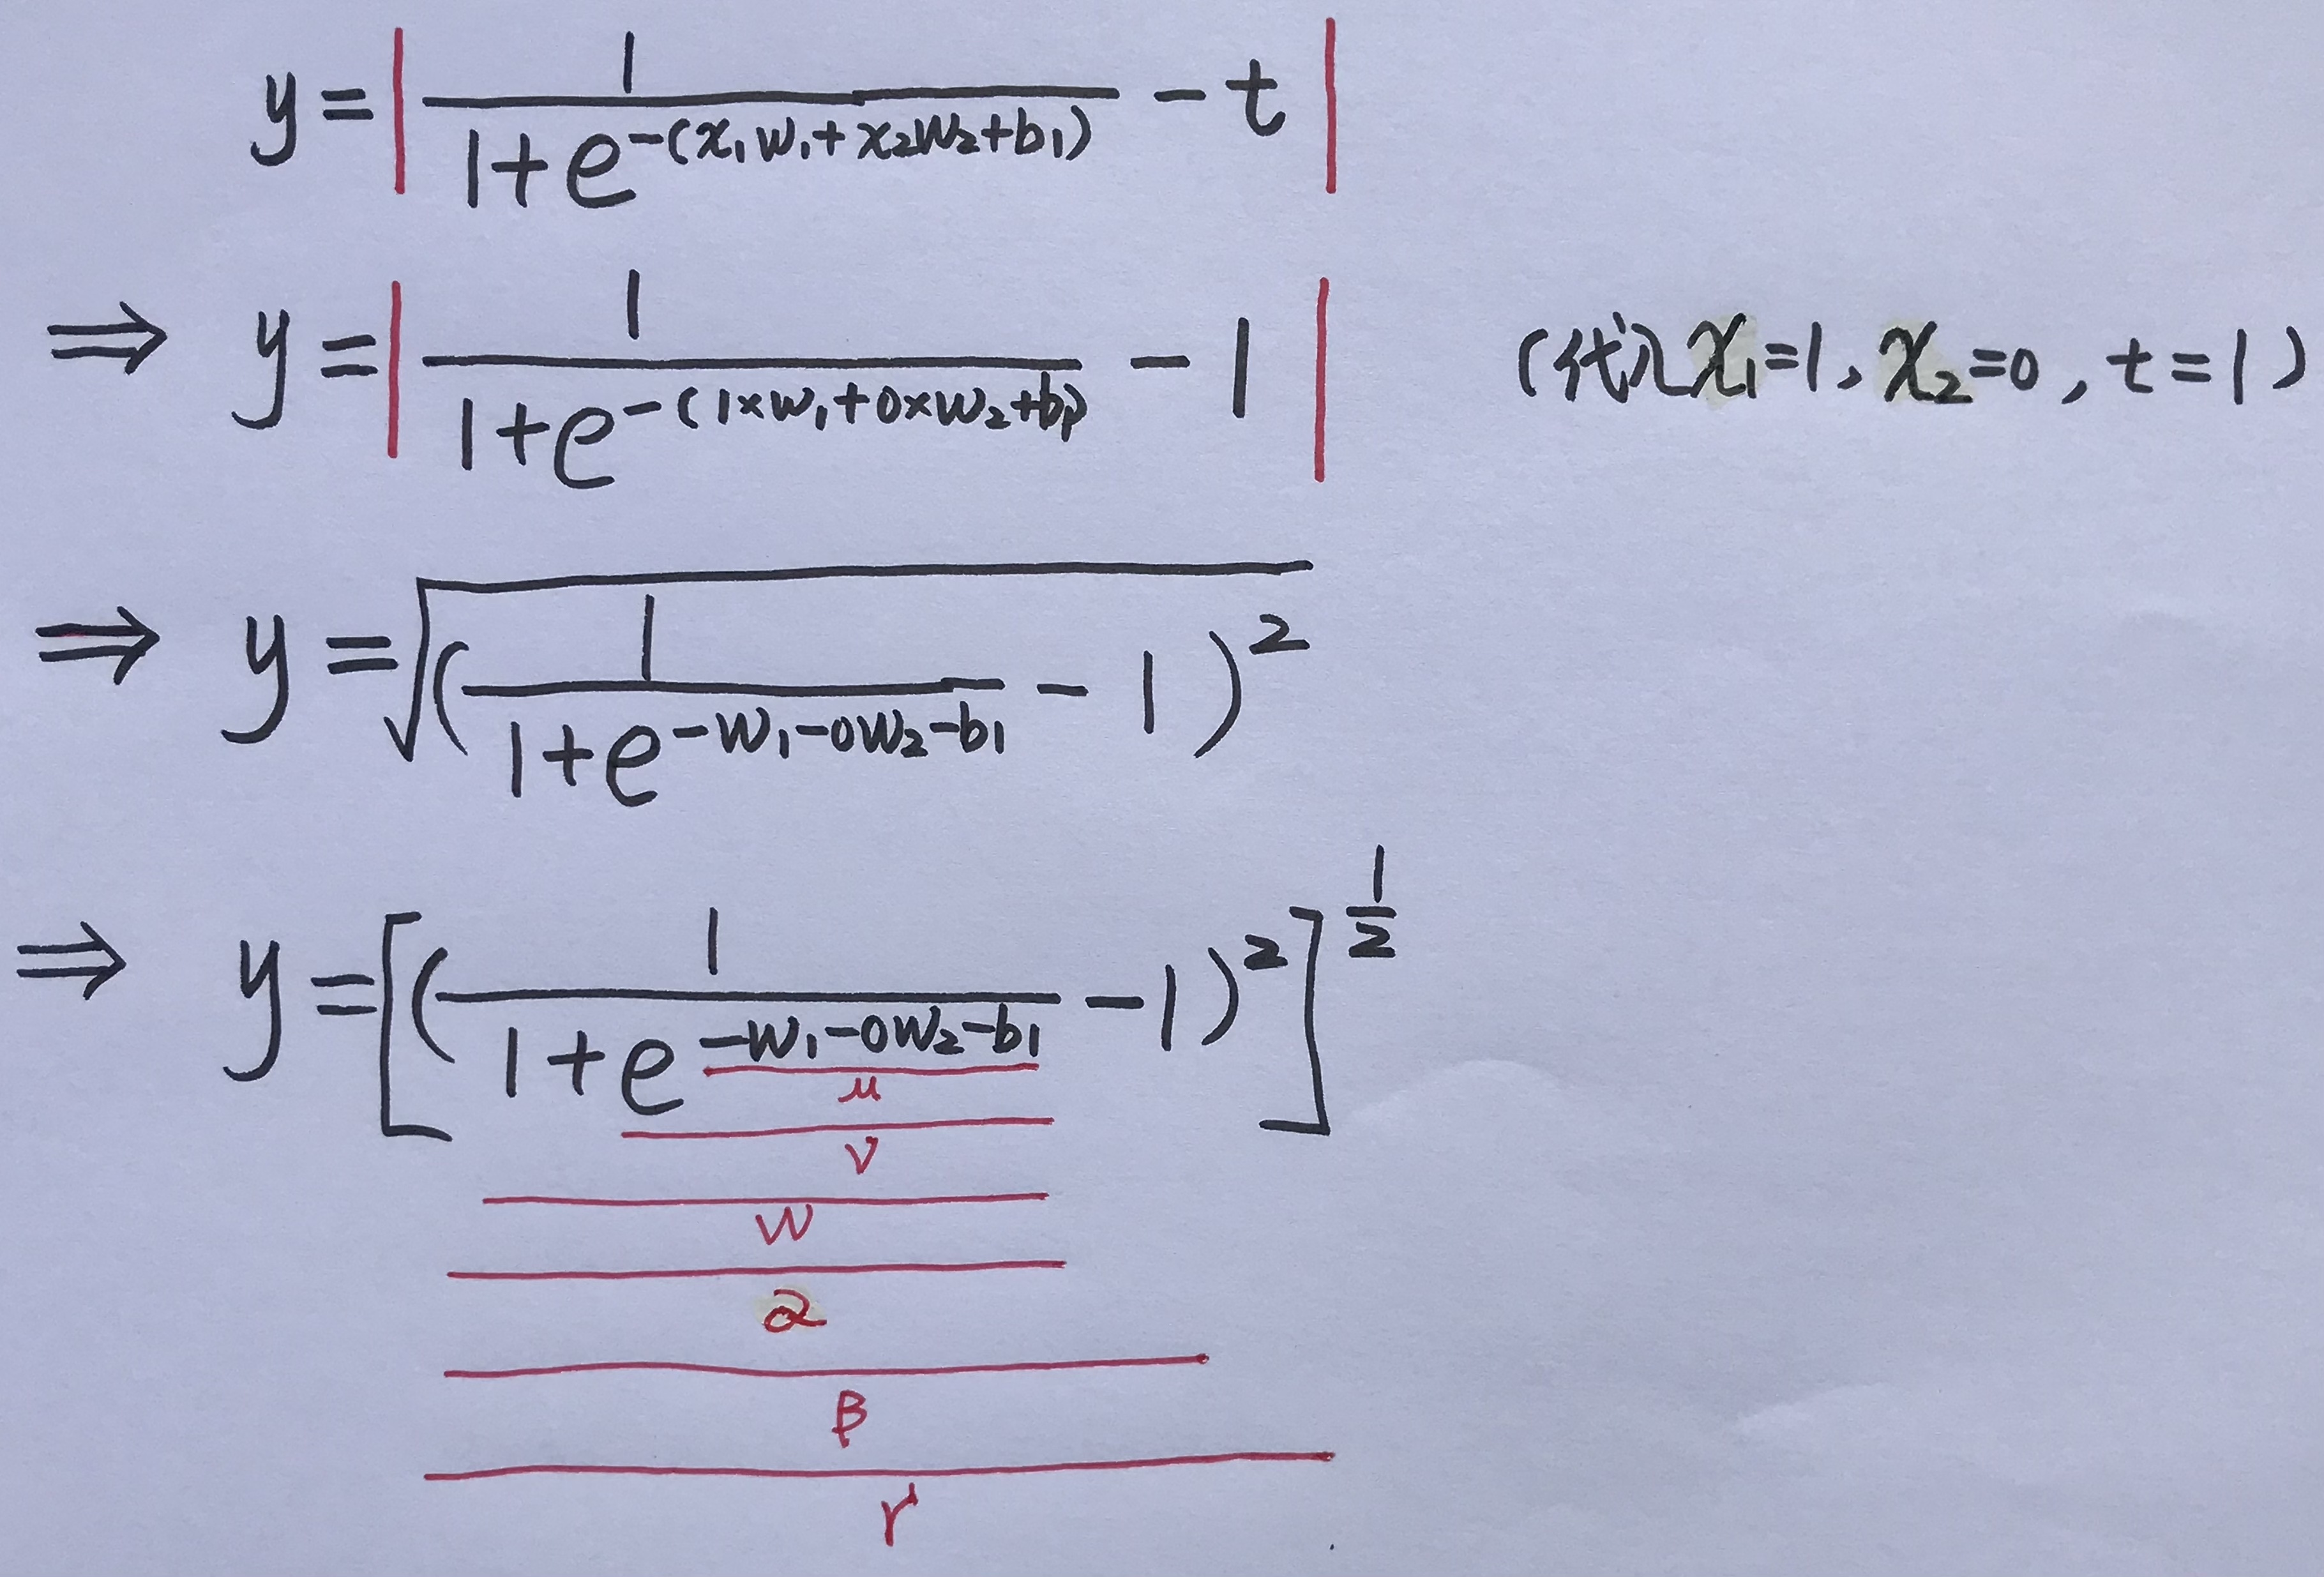 y = | 1/(1+e^{-(x₁w₁+x₂w₂+b₁)}) - t |
⇒ y = | 1/(1+e^{-(1×w₁+0×w₂+b₁)}) - 1 | (代入x₁=1, x₂=0, t=1)
⇒ y = √((1/(1+e^{-w₁-0w₂-b₁}) - 1)²)
⇒ y = [(1/(1+e^{-w₁-0w₂-b₁}) - 1)²]^{1/2}
u
v
w
α
β
r